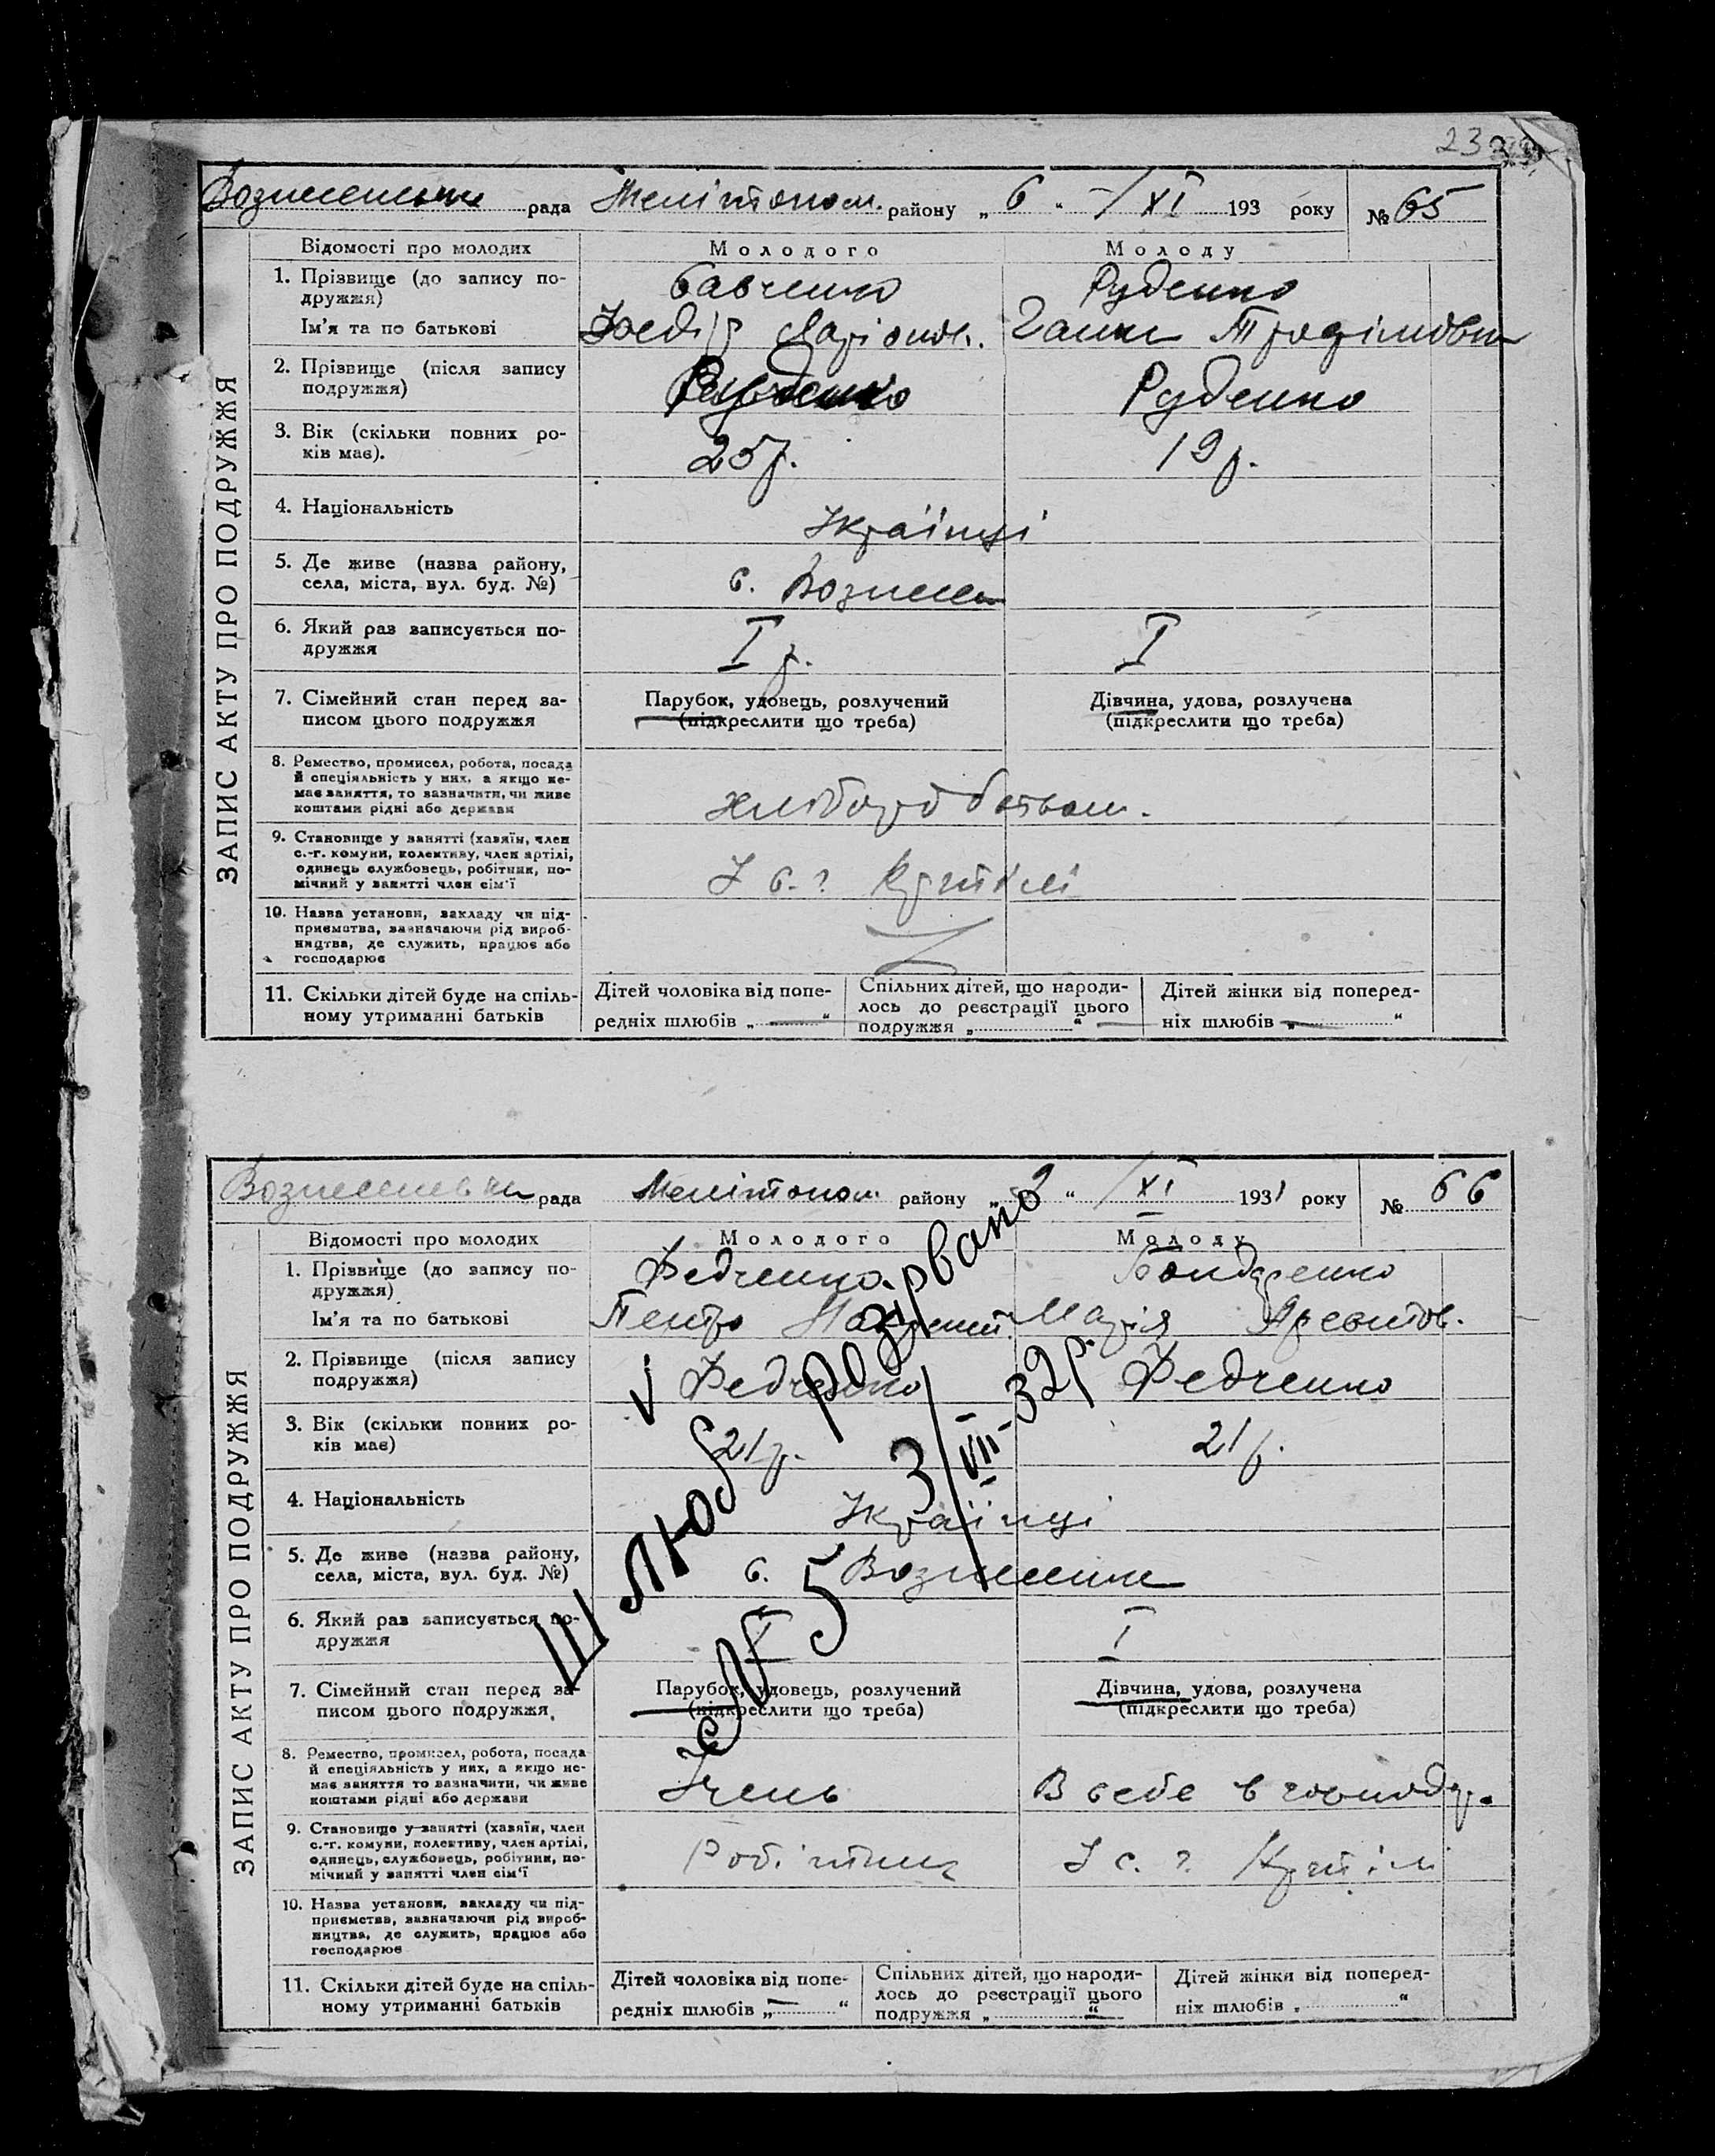 23
рада Мелітопол. району „ 6 “ XI 193 року № 65
ЗАПИС АКТУ ПРО ПОДРУЖЖЯ
Відомості про молодих Молодого Молоду
1. Прізвище (до запису по- Савченко Руденко
дружжя)
Ім'я та по батькові Ларіонов. Ганна Трофімовна
2. Прізвище (після запису Руденко
подружжя)
3. Вік (скільки повних ро- 25р. 19р.
ків має).
4. Національність Українці
5. Де живе (назва району,
села, міста, вул. буд. №) с. Вознесен
6. Який раз записується по- I р. I
дружжя
7. Сімейний стан перед за- Парубок, удовець, розлучений Дівчина, удова, розлучена
писом цього подружжя (підкреслити що треба) (підкреслити що треба)
8. Ремество, промисел, робота, посада
й спеціяльність у них, а якщо не-
має заняття, то зазначити, чи живе
коштами рідні або держави хліборобством.
9. Становище у занятті (хазяїн, член
с.-г. комуни, колективу, член артілі,
одинець службовець, робітник, по- У с. г. Артілі
мічний у занятті член сім'ї
10. Назва установи, закладу чи під-
приємства, зазначаючи рід вироб-
ництва, де служить, працює або
господарює
11. Скільки дітей буде на спіль- Дітей чоловіка від попе- Спільних дітей, що народи- Дітей жінки від поперед-
ному утриманні батьків редніх шлюбів „ — “ лось до реєстрації цього ніх шлюбів „ — “
подружжя „ “ —
рада Мелітопол. району „ 9 “ XI 1931 року № 66
ЗАПИС АКТУ ПРО ПОДРУЖЖЯ
Відомості про молодих Молодого Молоду
1. Прізвище (до запису по- Федченко Бондаренко
дружжя)
Ім'я та по батькові Петро Марія
2. Прізвище (після запису Федченко Федченко
подружжя)
3. Вік (скільки повних ро- 21р. 21р.
ків має)
4. Національність Українці
5. Де живе (назва району,
села, міста, вул. буд. №) с. Вознесенка
6. Який раз записується по- I I
дружжя
7. Сімейний стан перед за- Парубок, удовець, розлучений Дівчина, удова, розлучена
писом цього подружжя (підкреслити що треба) (підкреслити що треба)
8. Ремество, промисел, робота, посада
й спеціяльність у них, а якщо не-
має заняття то зазначити, чи живе Учень В себе в господар.
коштами рідні або держави
9. Становище у занятті (хазяїн, член
с.-г. комуни, колективу, член артілі,
одинець, службовець, робітник, по- Робітник У с. г. Артілі
мічний у занятті член сім'ї
10. Назва установи, закладу чи під-
приємства, зазначаючи рід вироб-
ництва, де служить, працює або
господарює
11. Скільки дітей буде на спіль- Дітей чоловіка від попе- Спільних дітей, що народи- Дітей жінки від поперед-
ному утриманні батьків редніх шлюбів „ — “ лось до реєстрації цього ніх шлюбів „ “
подружжя „ “
Шлюб розірвано
3/VII-32р.
5